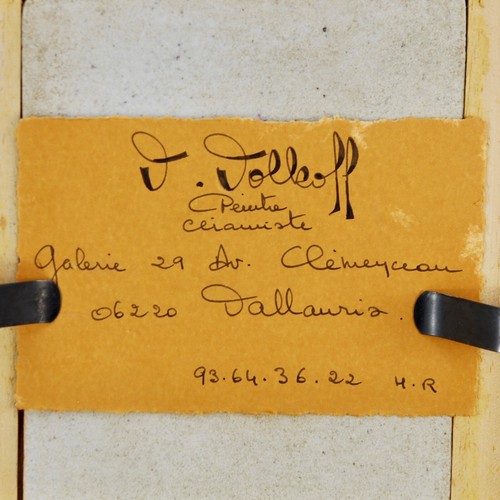 V. Volkoff
Peintre
céramiste
Galerie 29 Av. Clémenceau
06220 Vallauris.
93.64.36.22 H.R